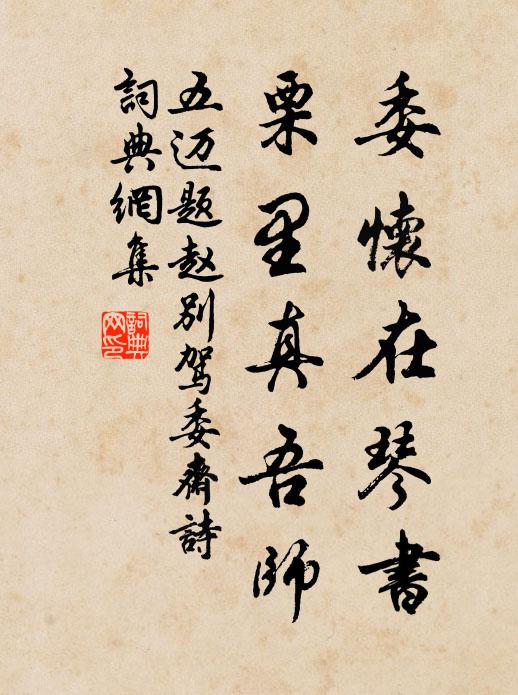 委懷在琴書
栗里真吾師
五迈题赵别駕委齋詩
詞典網集
詞典
网印